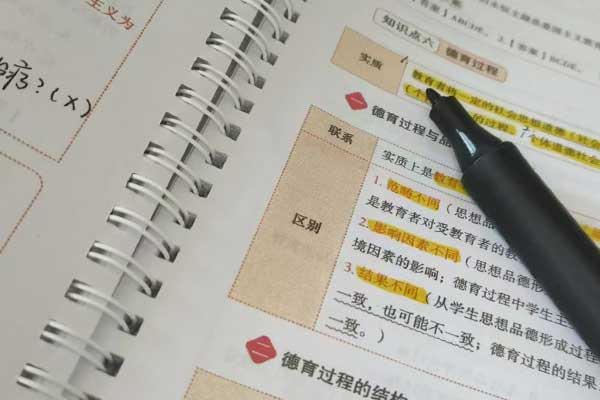 主义为
病?(×)
【答案】ABCDE。2.【答案】BCDE。
知识点六 德育过程
实质
教育者将一定的社会思想道德
的过程
一 德育过程与品
联系
实质上是教育
区别
1. 范畴不同(思想品
是教育者对受教育者的教
2. 影响因素不同(思想品德形
境因素的影响;德育过程中学生主
3. 结果不同(从学生思想品德形成过程
一致,也可能不一致;德育过程的结果
一致。)
二 德育过程的结构